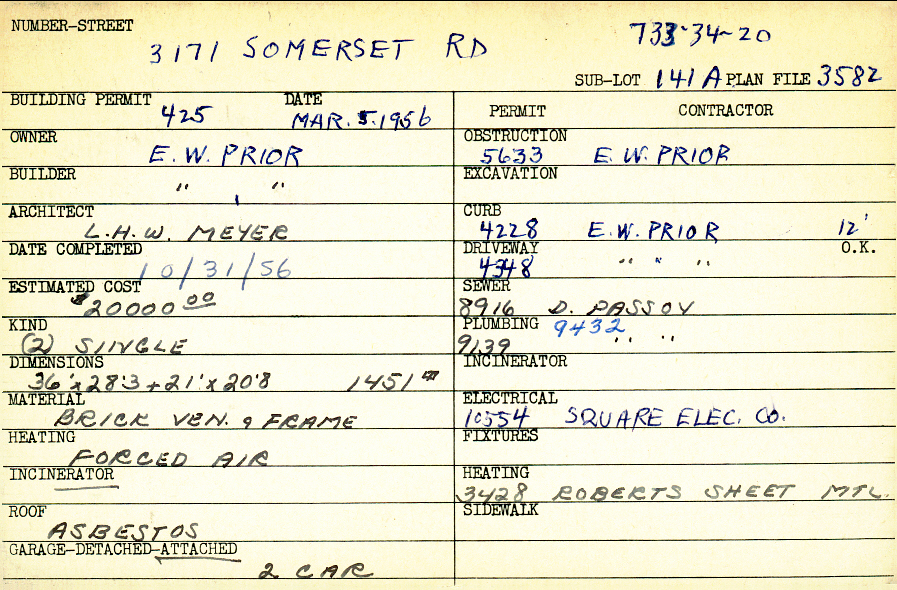 NUMBER-STREET
3171 SOMERSET RD 733-34-20
SUB-LOT 141A PLAN FILE 3582
BUILDING PERMIT 425 DATE MAR. 5. 1956
OWNER E.W. PRIOR
BUILDER " "
ARCHITECT L.H.W. MEYER
DATE COMPLETED 10/31/56
ESTIMATED COST $20000.00
KIND (2) SINGLE
DIMENSIONS 36'x28'3+21'x20'8 1451
MATERIAL BRICK VEN. & FRAME
HEATING FORCED AIR
INCINERATOR
ROOF ASBESTOS
GARAGE-DETACHED-ATTACHED 2 CAR
PERMIT CONTRACTOR
OBSTRUCTION 5633 E.W. PRIOR
EXCAVATION
CURB 4228 E.W. PRIOR 12'
DRIVEWAY 4348 " " " O.K.
SEWER 8916 D. PASSOV
PLUMBING 9432
9139 " "
INCINERATOR
ELECTRICAL 10554 SQUARE ELEC. CO.
FIXTURES
HEATING 3428 ROBERTS SHEET MTL.
SIDEWALK